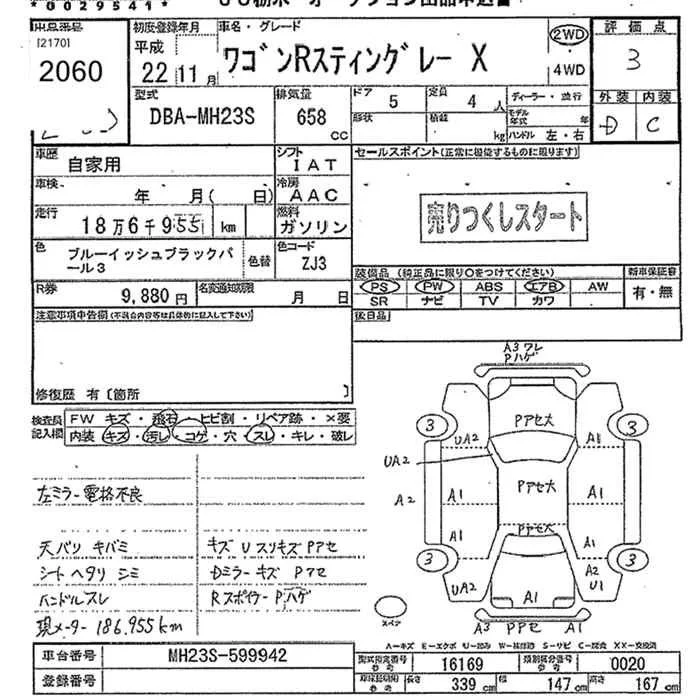 *0029541*
出品番号
[2170]
2060
初度登録年月
平成
22 11月
車名・グレード
ワゴンRスティングレー X
2WD
4WD
評価点
3
型式
DBA-MH23S
排気量
658
cc
ドア
5
定員
4 人
ディーラー・並行
形状
積載
kg
モデル年式
年
ハンドル 左・右
外装 内装
D C
車歴
自家用
シフト
IAT
セールスポイント(正常に機能するものに限ります)
車検
年 月( 日)
冷房
AAC
走行
18万6千955 km
燃料
ガソリン
売りつくしスタート
色
ブルーイッシュブラックパール3
色替
色コード
ZJ3
装備品 (純正品に限り○をつけてください)
新車保証書
PS PW ABS エアB AW
有・無
SR ナビ TV カワ
R券
9,880円
名変通知期限
月 日
後日品
注意事項申告欄(不具合内容等は具体的に記入して下さい)
修復歴 有〔箇所 〕
検査員記入欄
FW キズ・飛石・ヒビ割・リペア跡・×要
内装 キズ・汚レ・コゲ・穴・スレ・キレ・破レ
左ミラー電格不良
天バリ キバミ
キズ U スリキズ Pアセ
シート ヘタリ シミ
Dミラーキズ Pアセ
ハンドルスレ
Rスポイラー Pハゲ
現メーター 186,955km
A3 ワレ
Pハゲ
3
3
Pアセ大
UA2
A1
UA2
A2
A1
Pアセ大
A1
A1
Pアセ大
A1
3
3
UA2
A2
U1
A1
A3 Pアセ A1
スペア
A－キズ E－エクボ U－凹み W－補修跡 S－サビ C－腐食 XX－交換済
車台番号
MH23S-599942
型式指定番号
参考
16169
類別区分番号
参考
0020
登録番号
車検証明用
参考
長さ
339 cm
幅
147 cm
高さ
167 cm